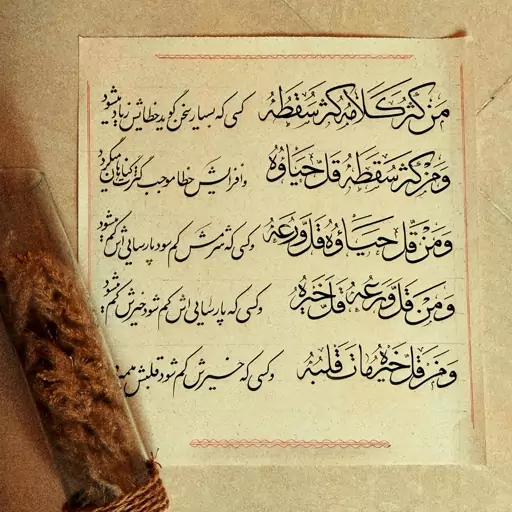 مَنْ كَثُرَ كَلَامُهُ كَثُرَ سَقَطُهُ کسی که بسیار سخن گوید خطایش زیاد میشود
وَ مَنْ كَثُرَ سَقَطُهُ قَلَّ حَيَاؤُهُ و افزایش خطا موجب کثرت گناهان میگردد
وَ مَنْ قَلَّ حَيَاؤُهُ قَلَّ وَرَعُهُ و کسی که شرمش کم شود پارسایی اش کم میشود
وَ مَنْ قَلَّ وَرَعُهُ قَلَّ خَيْرُهُ و کسی که پارسایی اش کم شود خیرش کم میشود
وَ مَنْ قَلَّ خَيْرُهُ مَاتَ قَلْبُهُ و کسی که خیرش کم شود قلبش